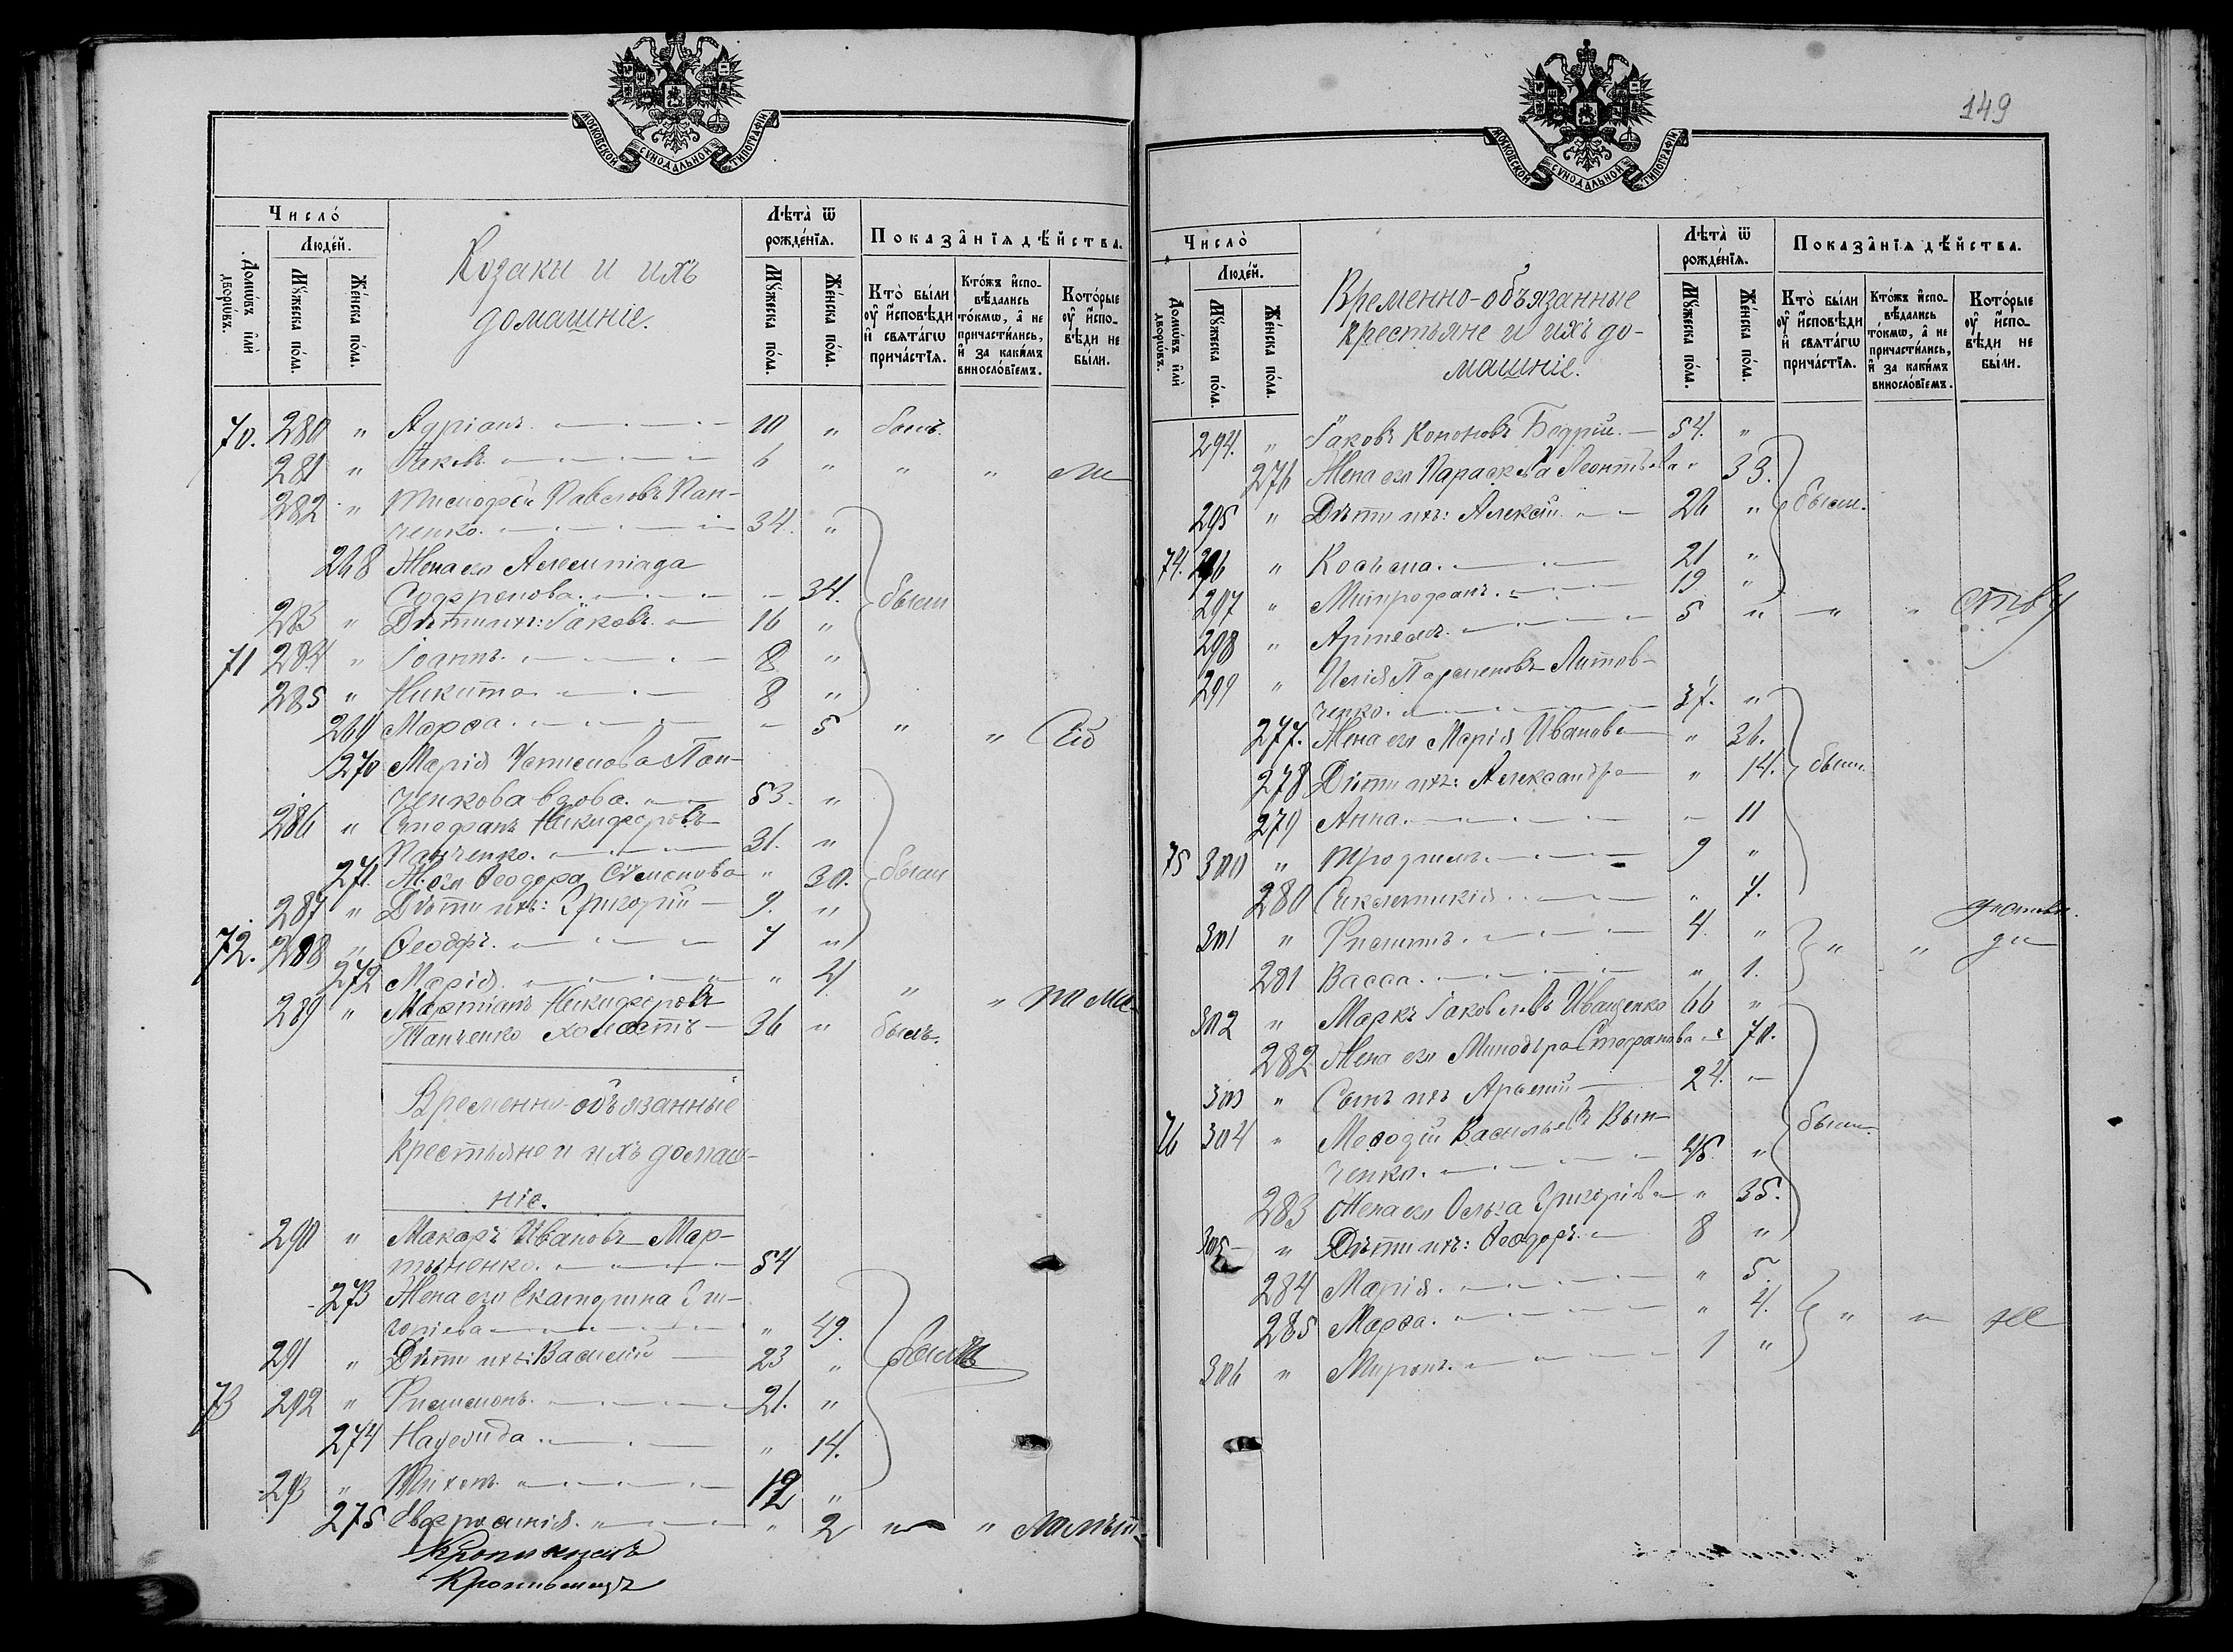 МОСКОВСКОЙ СѴНОДАЛЬНОЙ ТИПОГРАФІИ
Число
Людей.
Домѡвъ или дворѡвъ.
Мꙋжеска пола.
Женска пола.
Козаки и ихъ
домашніе.
Лѣта ѿ
рожденїѧ.
Мꙋжеска пола.
Женска пола.
Показанїѧ дѣйства.
Кто были ᲂу҆ исповѣди и свѧтагѡ причастїѧ.
Ктожъ исповѣдались токмѡ, а не причастились, и за какимъ винословїемъ.
Которые ᲂу҆ исповѣди не были.
70. 280 " Адріанъ. 10 " былъ.
281 " Іаковъ. 6 " " " ли
282 " Тимофей Павловъ Пан-
ченко. 34. "
268 Жена его Алемпіада
Софронова. 34. были
283 " Дѣти ихъ: Іаковъ. 16 "
71 284 " Іоаннъ. 8 "
285 " Никита 8 "
269 Марѳа. 5 " "
270 Марія Пан-
ченкова вдова. 53. "
286 " Стефанъ Никифоровъ
Панченко. 31. "
271. Ж. его Ѳеодора Сѷмеонова " 30. были
287 " Дѣти ихъ: Григорій 9. "
72. 288 " Ѳеодоръ. 7 "
272 Марія. " 4. " "
289 " Мартіанъ Никифоровъ
Панченко холостъ 36 " былъ.
Временно-объязанные
крестьяне и ихъ домаш-
ніе.
290 " Макаръ Ивановъ Мар-
тыненко. 54
273 Жена его Екатерина Гри-
горіева " 49.
291 " Дѣти ихъ: Василій 23 "
73 292 " Филимонъ. 21. "
274 Наѳелида. " 14.
293 " Тихонъ. 12 "
275 Евфросинія. " 2 " "
149
МОСКОВСКОЙ СѴНОДАЛЬНОЙ ТИПОГРАФІИ
Число
Людей.
Домѡвъ или дворѡвъ.
Мꙋжеска пола.
Женска пола.
Временно-объязанные
крестьяне и ихъ до-
машніе.
Лѣта ѿ
рожденїѧ.
Мꙋжеска пола.
Женска пола.
Показанїѧ дѣйства.
Кто были ᲂу҆ исповѣди и свѧтагѡ причастїѧ.
Ктожъ исповѣдались токмѡ, а не причастились, и за какимъ винословїемъ.
Которые ᲂу҆ исповѣди не были.
294. " Іаковъ Кононовъ Бедрій. 54. "
276 Жена его Параскева Леонтьева " 33.
295 " Дѣти ихъ: Алексій 26 " были.
74. 296 " Косьма. 21 "
297 " Митрофанъ. 19 "
298 " Артемъ. 5 " " " ству
299 " Илія Парменовъ Литов-
ченко. 37. "
277. Жена его Марія Иванова " 36.
278 Дѣти ихъ: Александра " 14. были.
279 Анна. 11
75 300 " Трофимъ. 9 "
280 Синклитикія " 7.
301 " Филиппъ. 4. " " "
281 Васса. " 1.
302 " Маркъ Іаковлевъ Иващенко 66 "
282 Жена его Минодора Стефанова " 70.
303 " Сынъ ихъ Арсеній 24. "
76 304 " Меѳодій Васильевъ Вин-
ченко. 45. " были.
283 Жена его Ольга Григоріева " 35.
305 " Дѣти ихъ: Ѳеодоръ. 8 "
284 Марія. " 5.
285 Марѳа. " 4. " " не
306 " Миронъ. 1 "